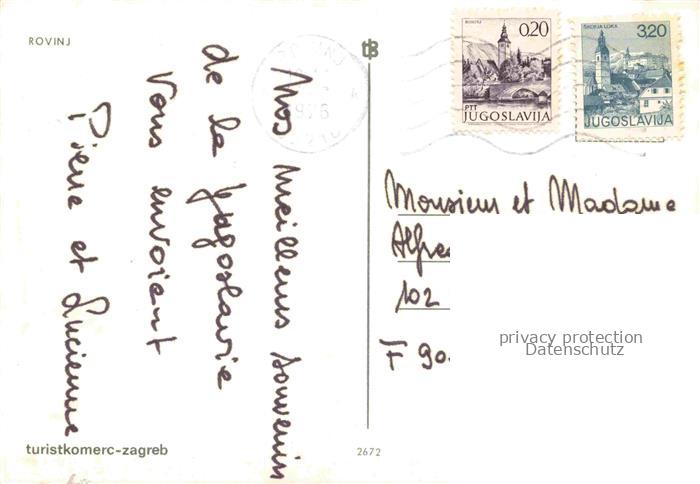 ROVINJ
Nos meilleurs souvenirs
de la Yugoslavie
Vous envoient
Pierre et Lucienne
turistkomerc-zagreb
2672
tB
0,20
PTT
JUGOSLAVIJA
ŠKOFJA LOKA
3,20
JUGOSLAVIJA
1976
Monsieur et Madame
Alfre
102
F 90.
privacy protection
Datenschutz